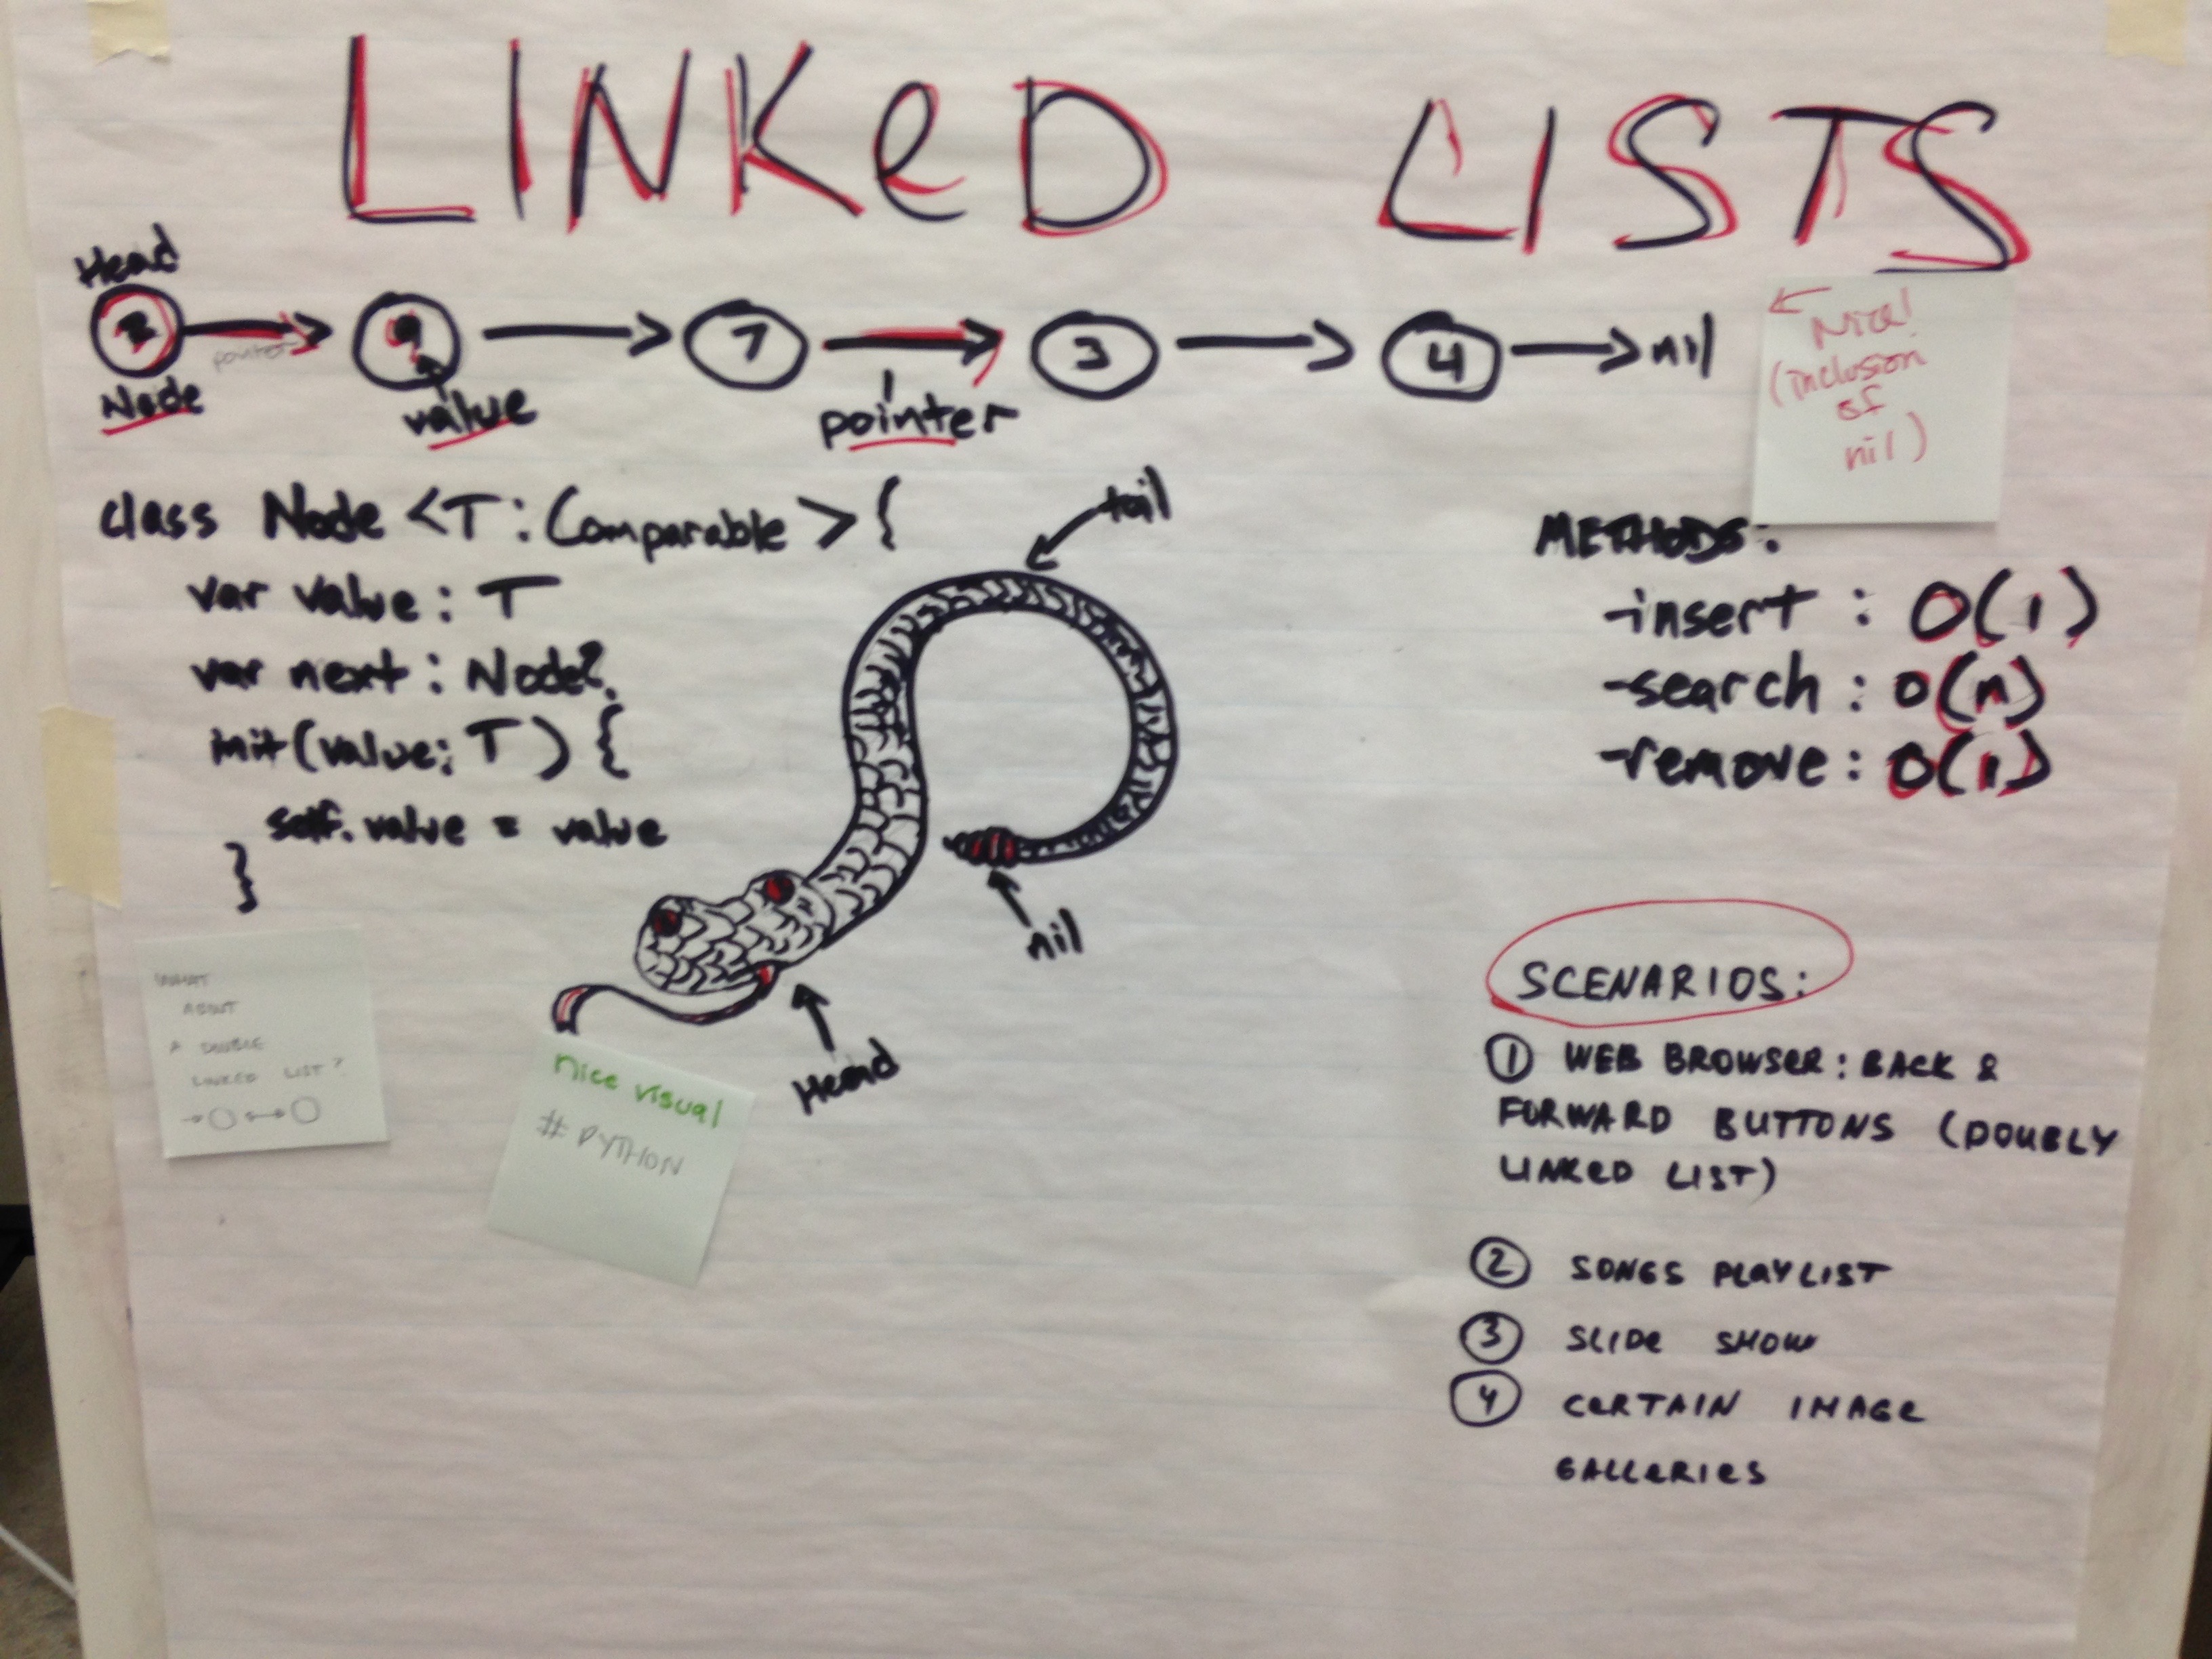 LINKeD LISTS
Head
2 9 7 3 4 nil
pointer
Node value pointer
Nice!
(inclusion
of
nil)
class Node <T: Comparable> {
var value: T
var next: Node?
init(value: T) {
self.value = value
}
tail
nil
Head
METHODS:
-insert: O(1)
-search: O(n)
-remove: O(1)
WHAT
ABOUT
A DOUBLE
LINKED LIST?
nice visual
# PYTHON
SCENARIOS:
1 WEB BROWSER: BACK &
FORWARD BUTTONS (DOUBLY
LINKeD LIST)
2 SONGS PLAYLIST
3 SLIDe SHOW
4 CeRTAIN IMAGe
GALLeRIeS